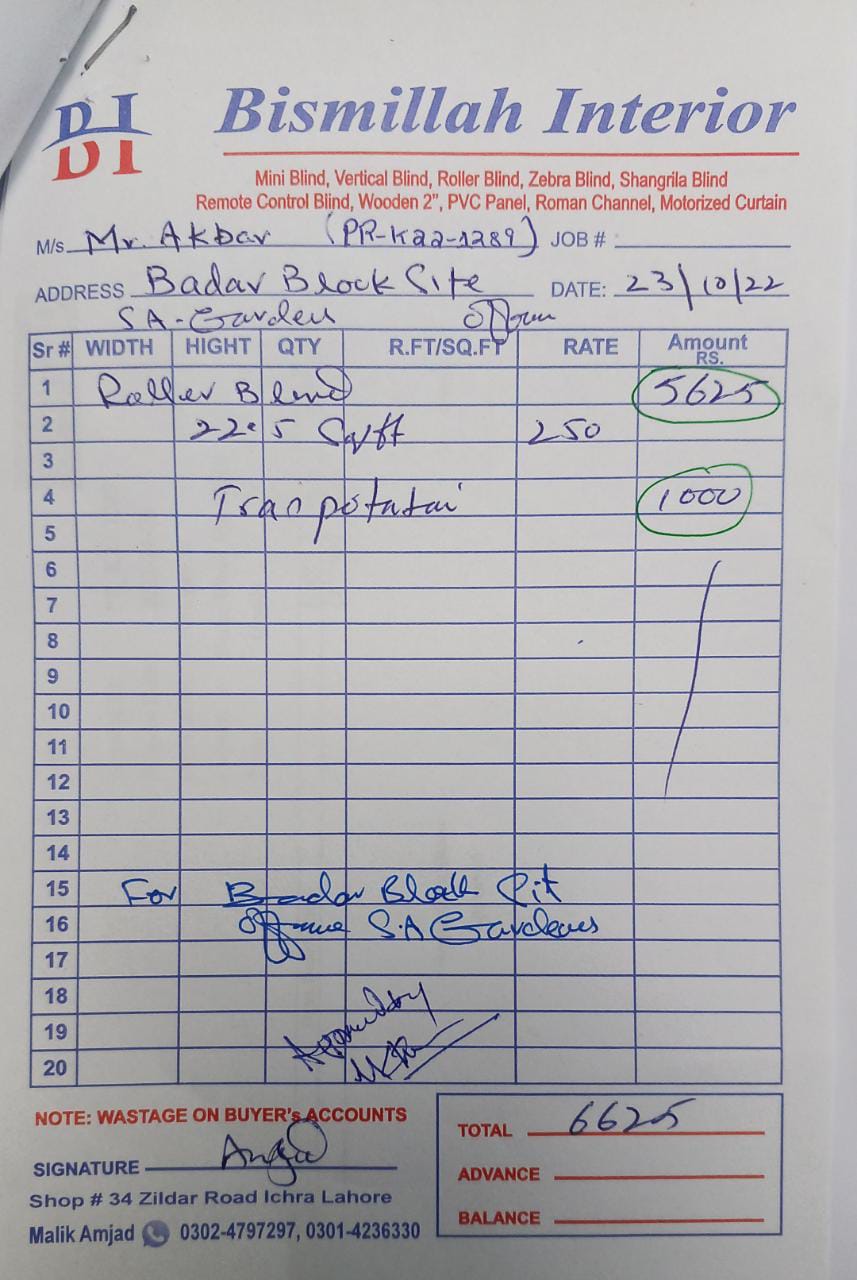 BI
Bismillah Interior
Mini Blind, Vertical Blind, Roller Blind, Zebra Blind, Shangrila Blind
Remote Control Blind, Wooden 2", PVC Panel, Roman Channel, Motorized Curtain
M/s. Mr. Akbar (PR-K22-1289) JOB #
ADDRESS Badar Block Site DATE: 23/10/22
SA-Garden Office
Sr # WIDTH HIGHT QTY R.FT/SQ.FT RATE Amount RS.
1 Roller Blind 5625
2 22.5 Sq/ft 250
3
4 Tranpotatai 1000
5
6
7
8
9
10
11
12
13
14
15 For Badar Block Sit
16 S.A Gardens
17
18
19
20
NOTE: WASTAGE ON BUYER's ACCOUNTS
SIGNATURE Amjad
TOTAL 6625
ADVANCE
BALANCE
Shop # 34 Zildar Road Ichra Lahore
Malik Amjad 0302-4797297, 0301-4236330